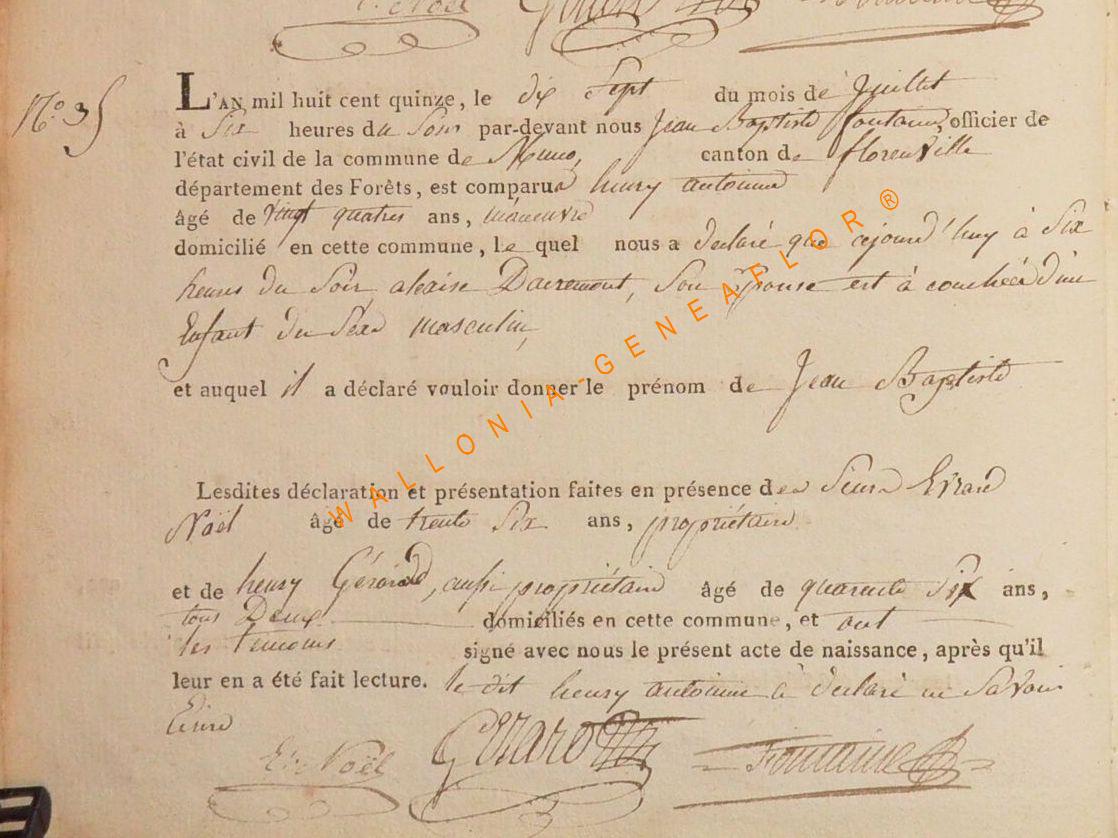 E. Noël Gérard Fontaine
N.o 35
L'AN mil huit cent quinze, le dix Sept du mois de Juillet
à Six heures du Soir par-devant nous Jean Baptiste fontaine, officier de
l'état civil de la commune de Muno, canton de florenville
département des Forêts, est comparu henry antoinne
âgé de vingt quatres ans, manoeuvre
domicilié en cette commune, le quel nous a déclaré que cejourd'huy à Six
heures du Soir alexise Dairemont, Son Epouse est à couchée d'un
Enfant du Séxe masculin,
et auquel il a déclaré vouloir donner le prénom de Jean Baptiste
Lesdites déclaration et présentation faites en présence des Sieurs Evrard
Noël âgé de trente Six ans, propriétaire
et de henry Gérard, aussi propriétaire âgé de quarente Six ans,
tous Deux domiciliés en cette commune, et ont
les temoins signé avec nous le présent acte de naissance, après qu'il
leur en a été fait lecture. le dit henry antoinne à déclaré ne Savoir
Ecrire
Ev. Noël Gérard Fontaine
WALLONIA-GENEAFLOR ®